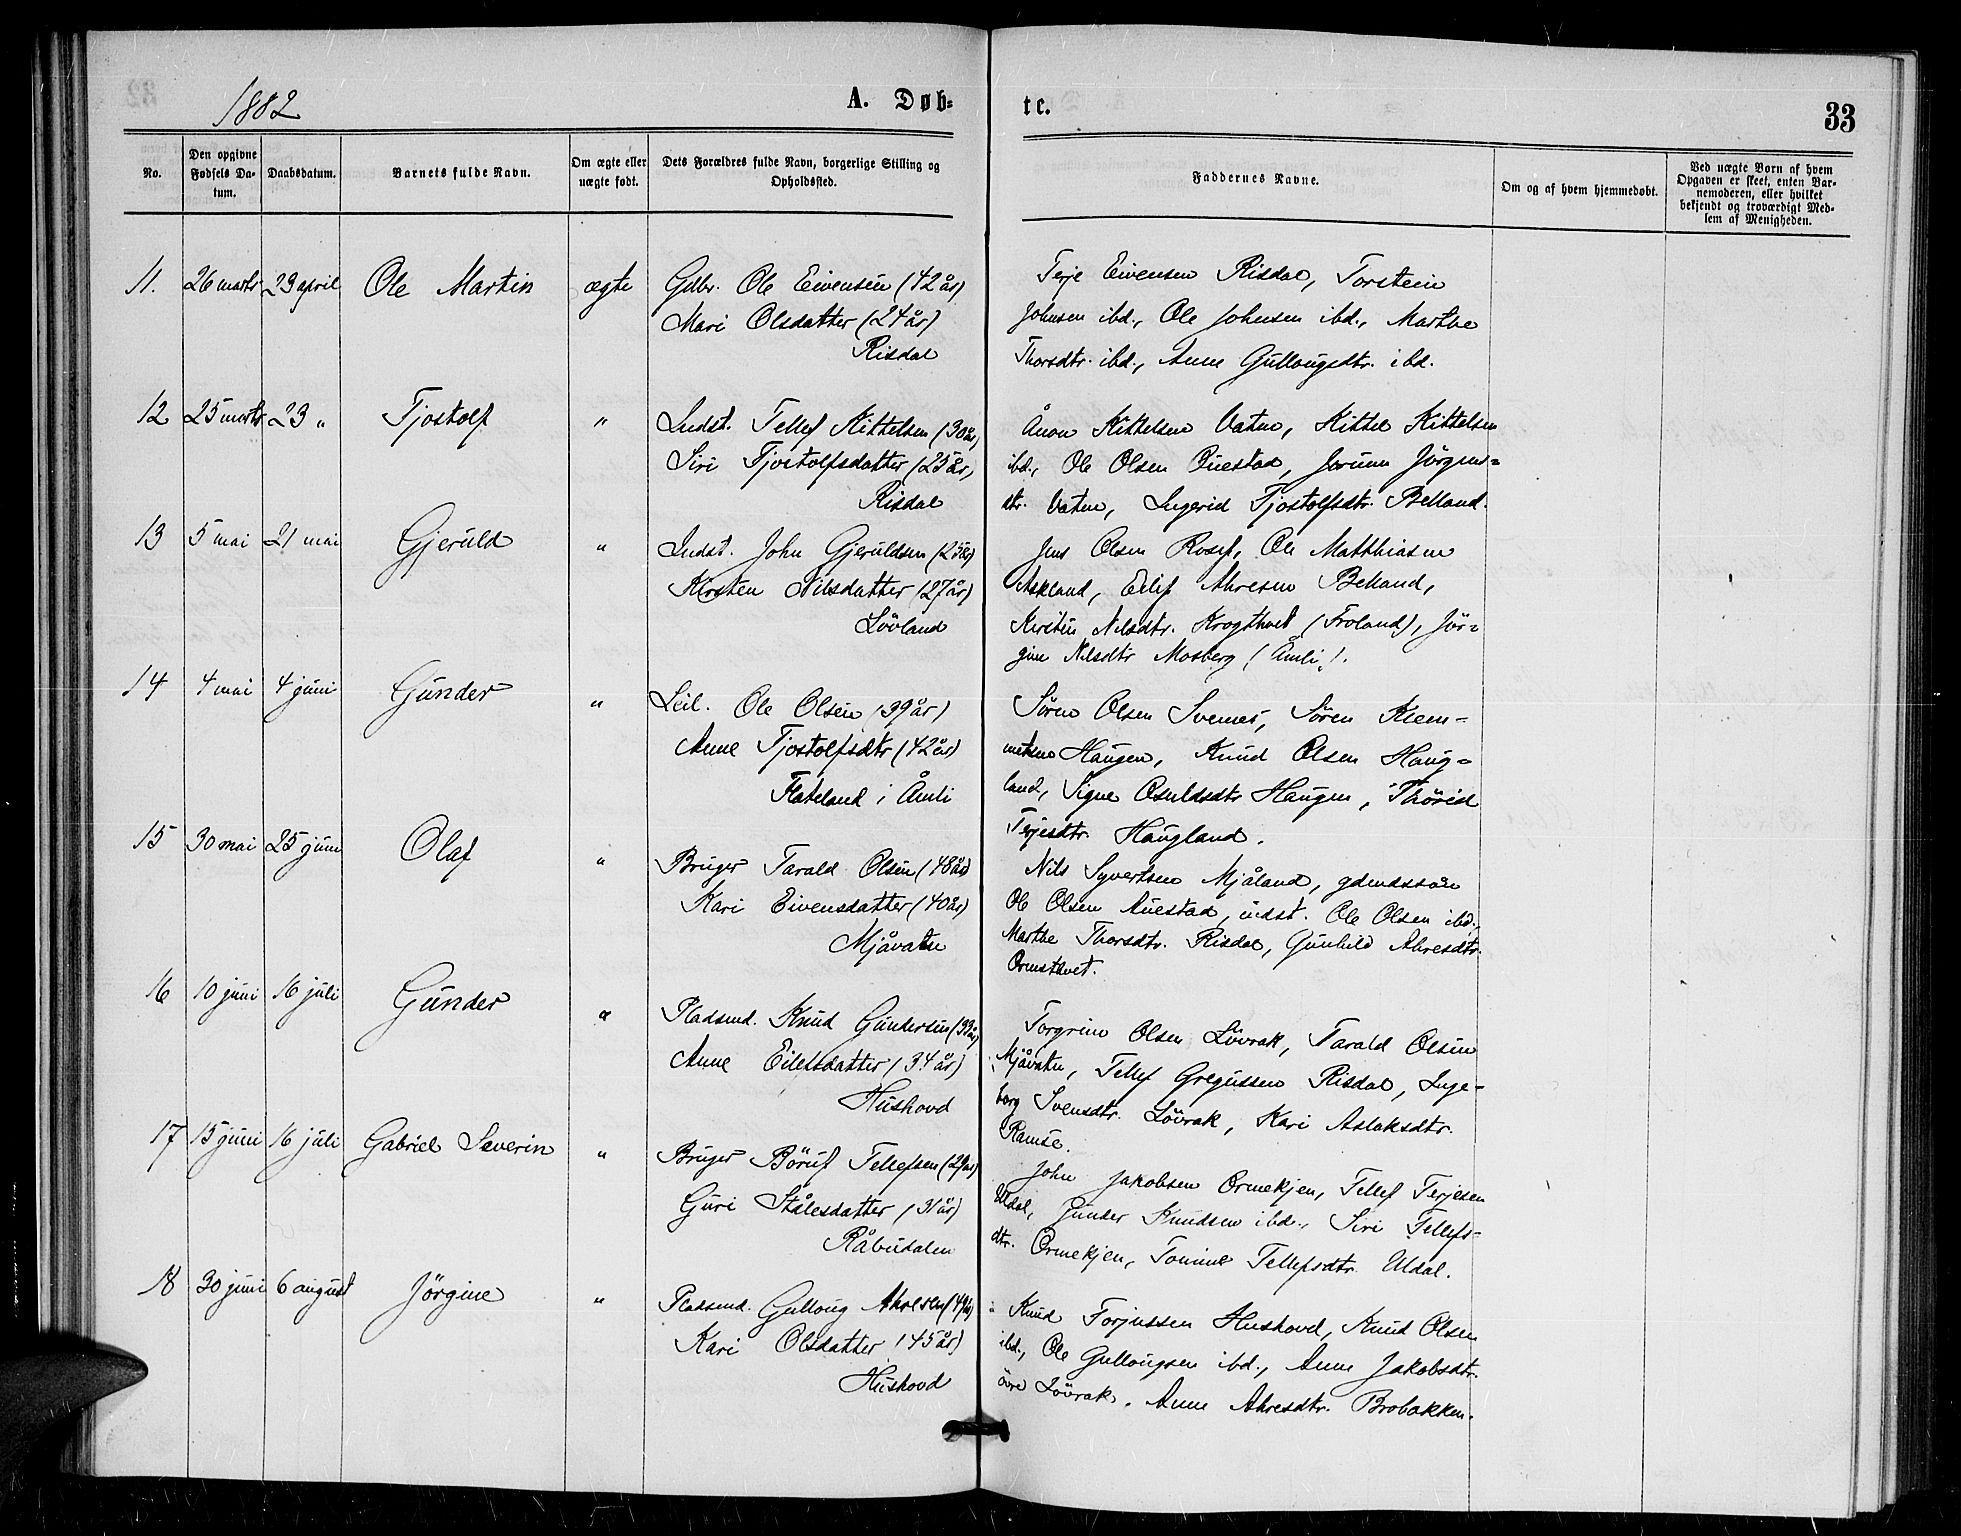 1882
A. Døb-
te.
33
No.
Den opgivne Fødsels Da-tum.
Daabsdatum.
Barnets fulde Navn.
Om ægte eller uægte født.
Dets Forældres fulde Navn, borgerlige Stilling og Opholdssted.
Faddernes Navne.
Om og af hvem hjemmedøbt.
Ved uægte Børn af hvem Opgaven er skeet, enten Bar-nemoderen, eller hvilket bekjendt og troværdigt Med-lem af Menigheden.
11. 26 marts 23 april Ole Martin ægte Gdbr. Ole Eivensen (42 år)
Mari Olsdatter (24 år)
Risdal
Terje Eivensen Risdal, Torstein
Johnsen ibd., Ole Johnsen ibd., Marthe
Thorsdtr. ibd., Anne Gullougsdtr. ibd.
12 25 marts 23 " Tjostolf " Indst. Tellef Kittelsen (30 år,
Siri Tjostolfsdatter (25 år,
Risdal
Ånon Kittelsen Vatne, Kittel Kittelsen
ibd., Ole Olsen Øuestad, Jorunn Jörgens-
dtr. Vatne, Ingerid Tjostolfsdtr. Belland.
13 5 mai 21 mai Gjeruld " Indst. John Gjeruldsen
Kirsten Nilsdatter (27 år)
Lövland
Jens Olsen Rosef, Ole Matthiasen
Askland, Eilef Ahresen Belland,
Kirsten Nilsdtr. Krogthvet (Froland), Jör-
gine Nilsdtr Mosberg (Åmli).
14 4 mai 4 juni Gunder " Leil. Ole Olsen (39 år)
Anne Tjostolfsdtr (42 år)
Flateland i Åmli
Sören Olsen Svenes, Sören Klem-
metsen Haugen, Knud Olsen Haug-
land, Signe Osuldsdtr Haugen, Thorid
Terjesdtr. Haugland.
15 30 mai 25 juni Olaf " Bruger Tarald Olsen (48 år)
Kari Eivensdatter (40 år)
Mjåvatn
Nils Syvertsen Mjåland, gdmdssön
Ole Olsen Auestad, indst. Ole Olsen ibd.,
Marthe Thorsdtr. Risdal, Gunhild Ahresdtr.
Ormsthvet.
16 10 juni 16 juli Gunder " Pladsmd. Knud Gundersen (33 år)
Anne Eilefsdatter (34 år)
Hushovd
Torgrim Olsen Lövrak, Tarald Olsen
Mjåvatn, Tellef Gregussen Risdal, Inge-
borg Svensdtr. Lövrak, Kari Aslaksdtr.
Ramse.
17 15 juni 16 juli Gabriel Severin " Bruger Böruf Tellefsen (29 år)
Guri Stålesdatter (31 år)
Råbudalen
John Jakobsen Ormekjen, Tellef Terjesen
Uldal, Gunder Knudsen ibd., Siri Tellefs-
dtr. Ormekjen, Tomine Tellefsdtr. Uldal.
18 30 juni 6 august Jörgine " Pladsmd. Gulloug Ahresen (49 år)
Kari Olsdatter (45 år)
Hushovd
Knud Torjussen Hushovd, Knud Olsen
ibd., Ole Gullougsen ibd., Anne Jakobsdtr.
övre Lövrak, Anne Ahresdtr. Brobakken.